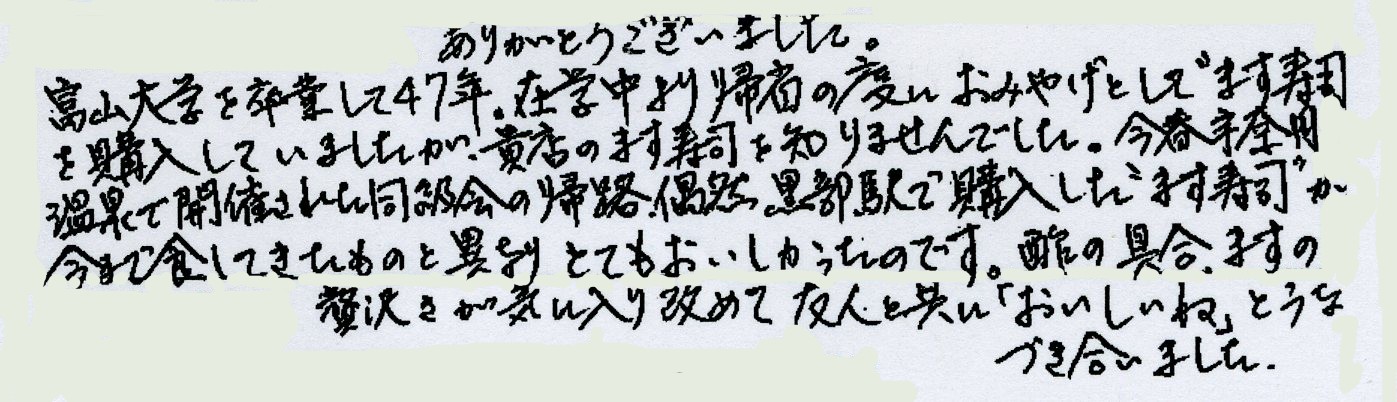 ありがとうございました。
富山大学を卒業して47年。在学中より帰省の度におみやげとして"ます寿司
を購入していましたが、貴店のます寿司を知りませんでした。今春宇奈月
温泉で開催された同級会の帰路、偶然、黒部駅で購入した"ます寿司"が
今まで食してきたものと異なりとてもおいしかったのです。酢の具合、ますの
贅沢さが気に入り改めて友人と共に「おいしいね」とうな
づき合いました.